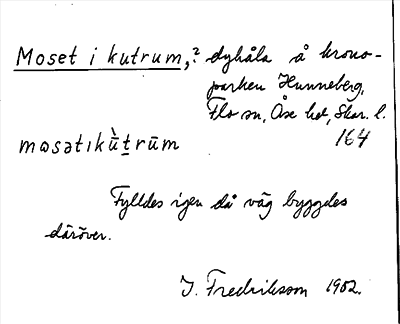 Moset i kutrum,? dyhåla å krono-
parken Hunneberg,
Flo sn, Åse hd, Skar. l.
164
mɷsətɩkù̄t̲rūm
Fylldes igen då väg byggdes
däröver.
I. Fredriksson 1902.